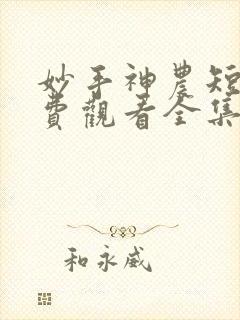 妙手神農短
費觀看全集
和永威